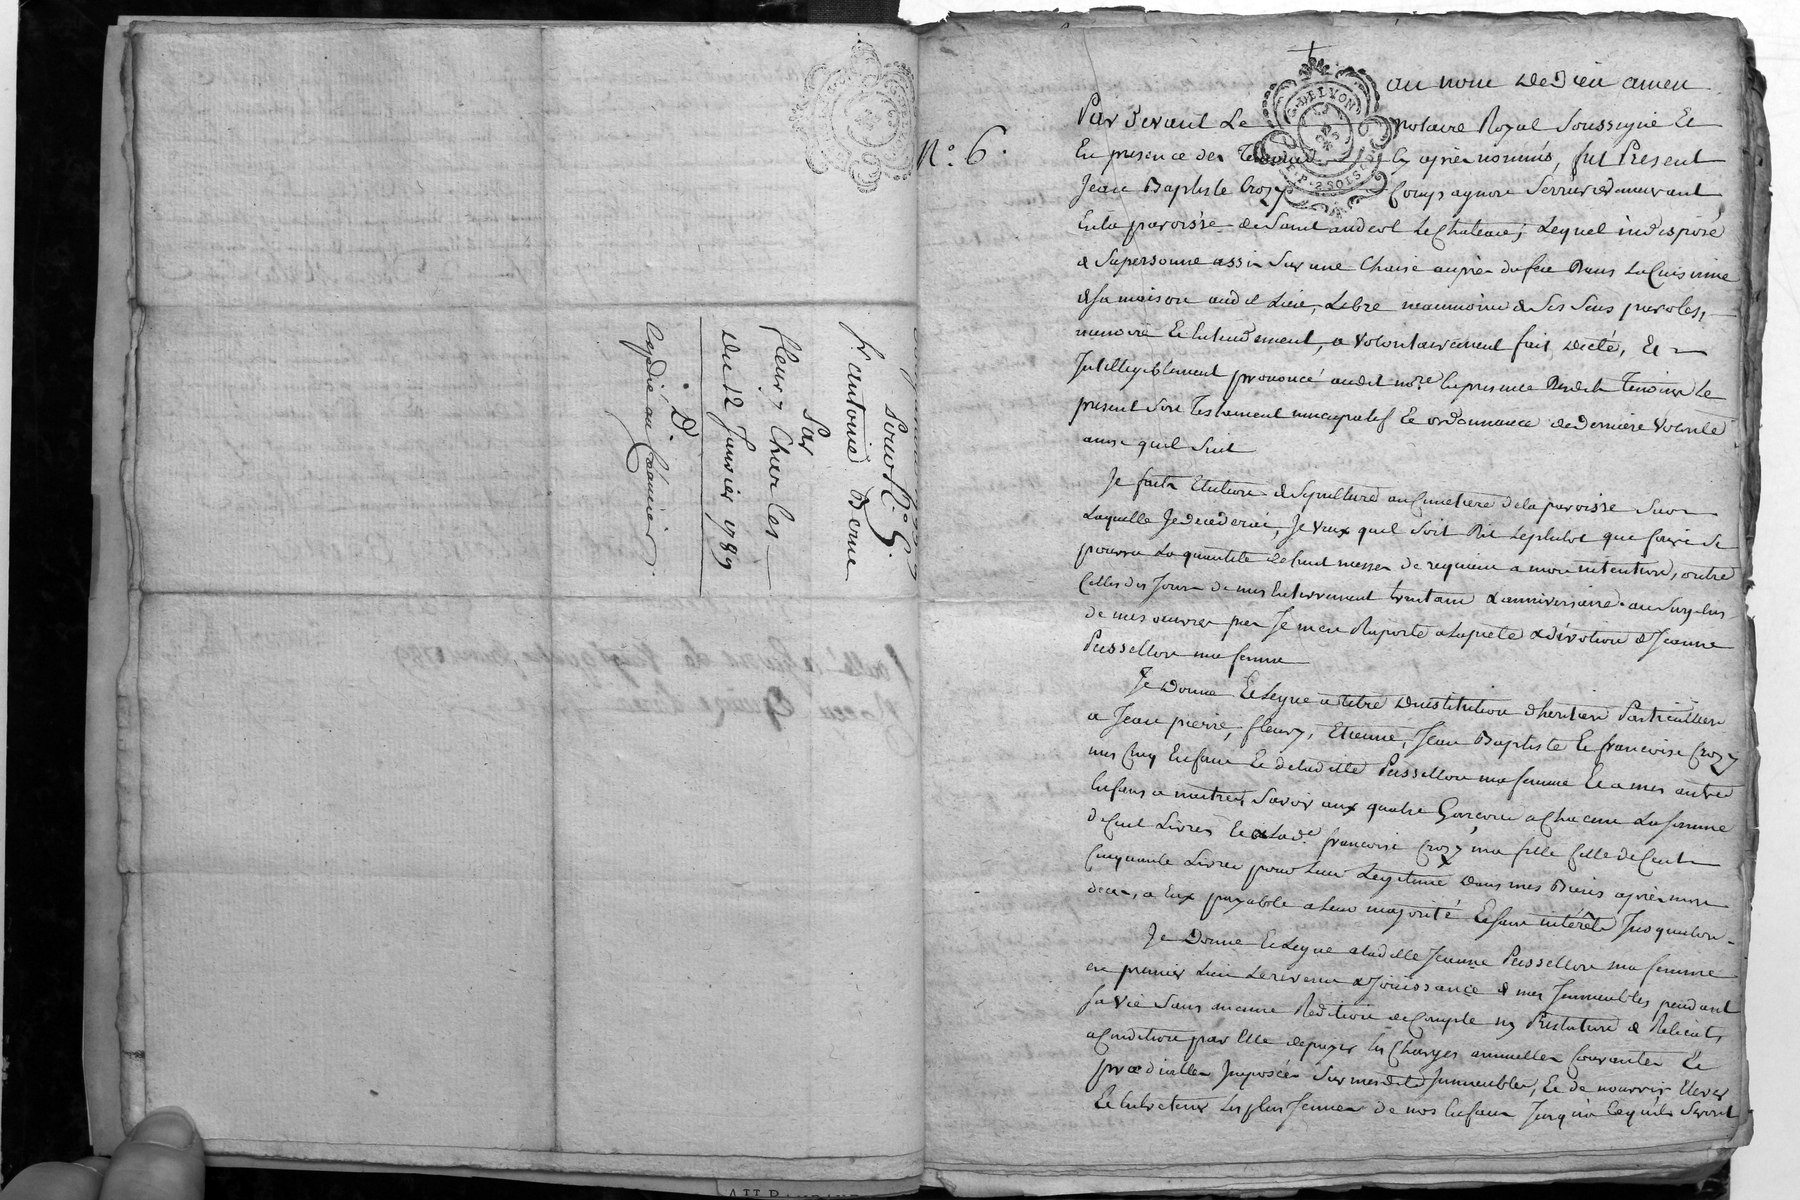 Sous N.° 5.
fr. antoine Berne
Par
fleury Charles
Du 12 Janvier 1789
D.
N.° 6.
G. DE LYON
P. 2 SOLS
au nom de Dieu amen
Par Devant Le notaire Royal Soussigné Et
En presence des Temoins cy après nommés, fut Present
Jean Baptiste Crozy Compagnon Serrurier demeurant
En la paroisse de Saint andeol Le Chateau, Lequel indisposé
de Sa personne assis Sur une Chaise auprès du feu Dans La Cuisinne
de Sa maison audit Lieu, Libre neanmoins de Ses Sens paroles,
memoire Et Entendement, a volontairement fait, dicté, Et
Intelligiblement prononcé audit no.re En presence Desdits Temoins Le
present Son Testament nuncupatif Et ordonnance de Derniere volonté
ainsi quil Suit
Je fais Election de Sepulture au Cimetiere de la paroisse Sur
Laquelle Je decederai, Je veux quil Soit Dit Le plutot que faire Se
pourra La quantité de huit messes de requiem a mon intention, outre
Celles des Jours de mes Enterrement trentain & anniversaire. au Surplus
de mes œuvres pies Je m'en Raporte a La pieté & devotion de Jeanne
Peissellon ma femme
Je Donne Et Legue a titre D'institution d'heritiers Particuliers
a Jean pierre, fleury, Etienne, Jean Baptiste Et francoise Crozy
mes Cinq Enfans Et de ladite Peissellon ma femme Et a mes autres
Enfans a naitre, Savoir aux quatre Garçons a Chacun La somme
de Cent Livres Et a Lad.e francoise Crozy ma fille Celle de Cent
Cinquante Livres pour Leur Legitime Dans mes Biens après mon
deces, a Eux payable a Leur majorité Et sans intérêts Jusqualors
Je Donne Et Legue a Ladite Jeanne Peissellon ma femme
en premier Lieu Le revenu & Jouissance de mes Immeubles pendant
sa vie Sans aucune Redition de Compte ny Prestation de Relicat,
a Condition par Elle de payer Les Charges annuelles Courantes Et
prædialles Imposées Sur mesdits Immeubles, Et de nourrir Elever
Et Entretenir Les plus Jeunes de nos Enfans Jusqu'a Ce qu'ils Seront